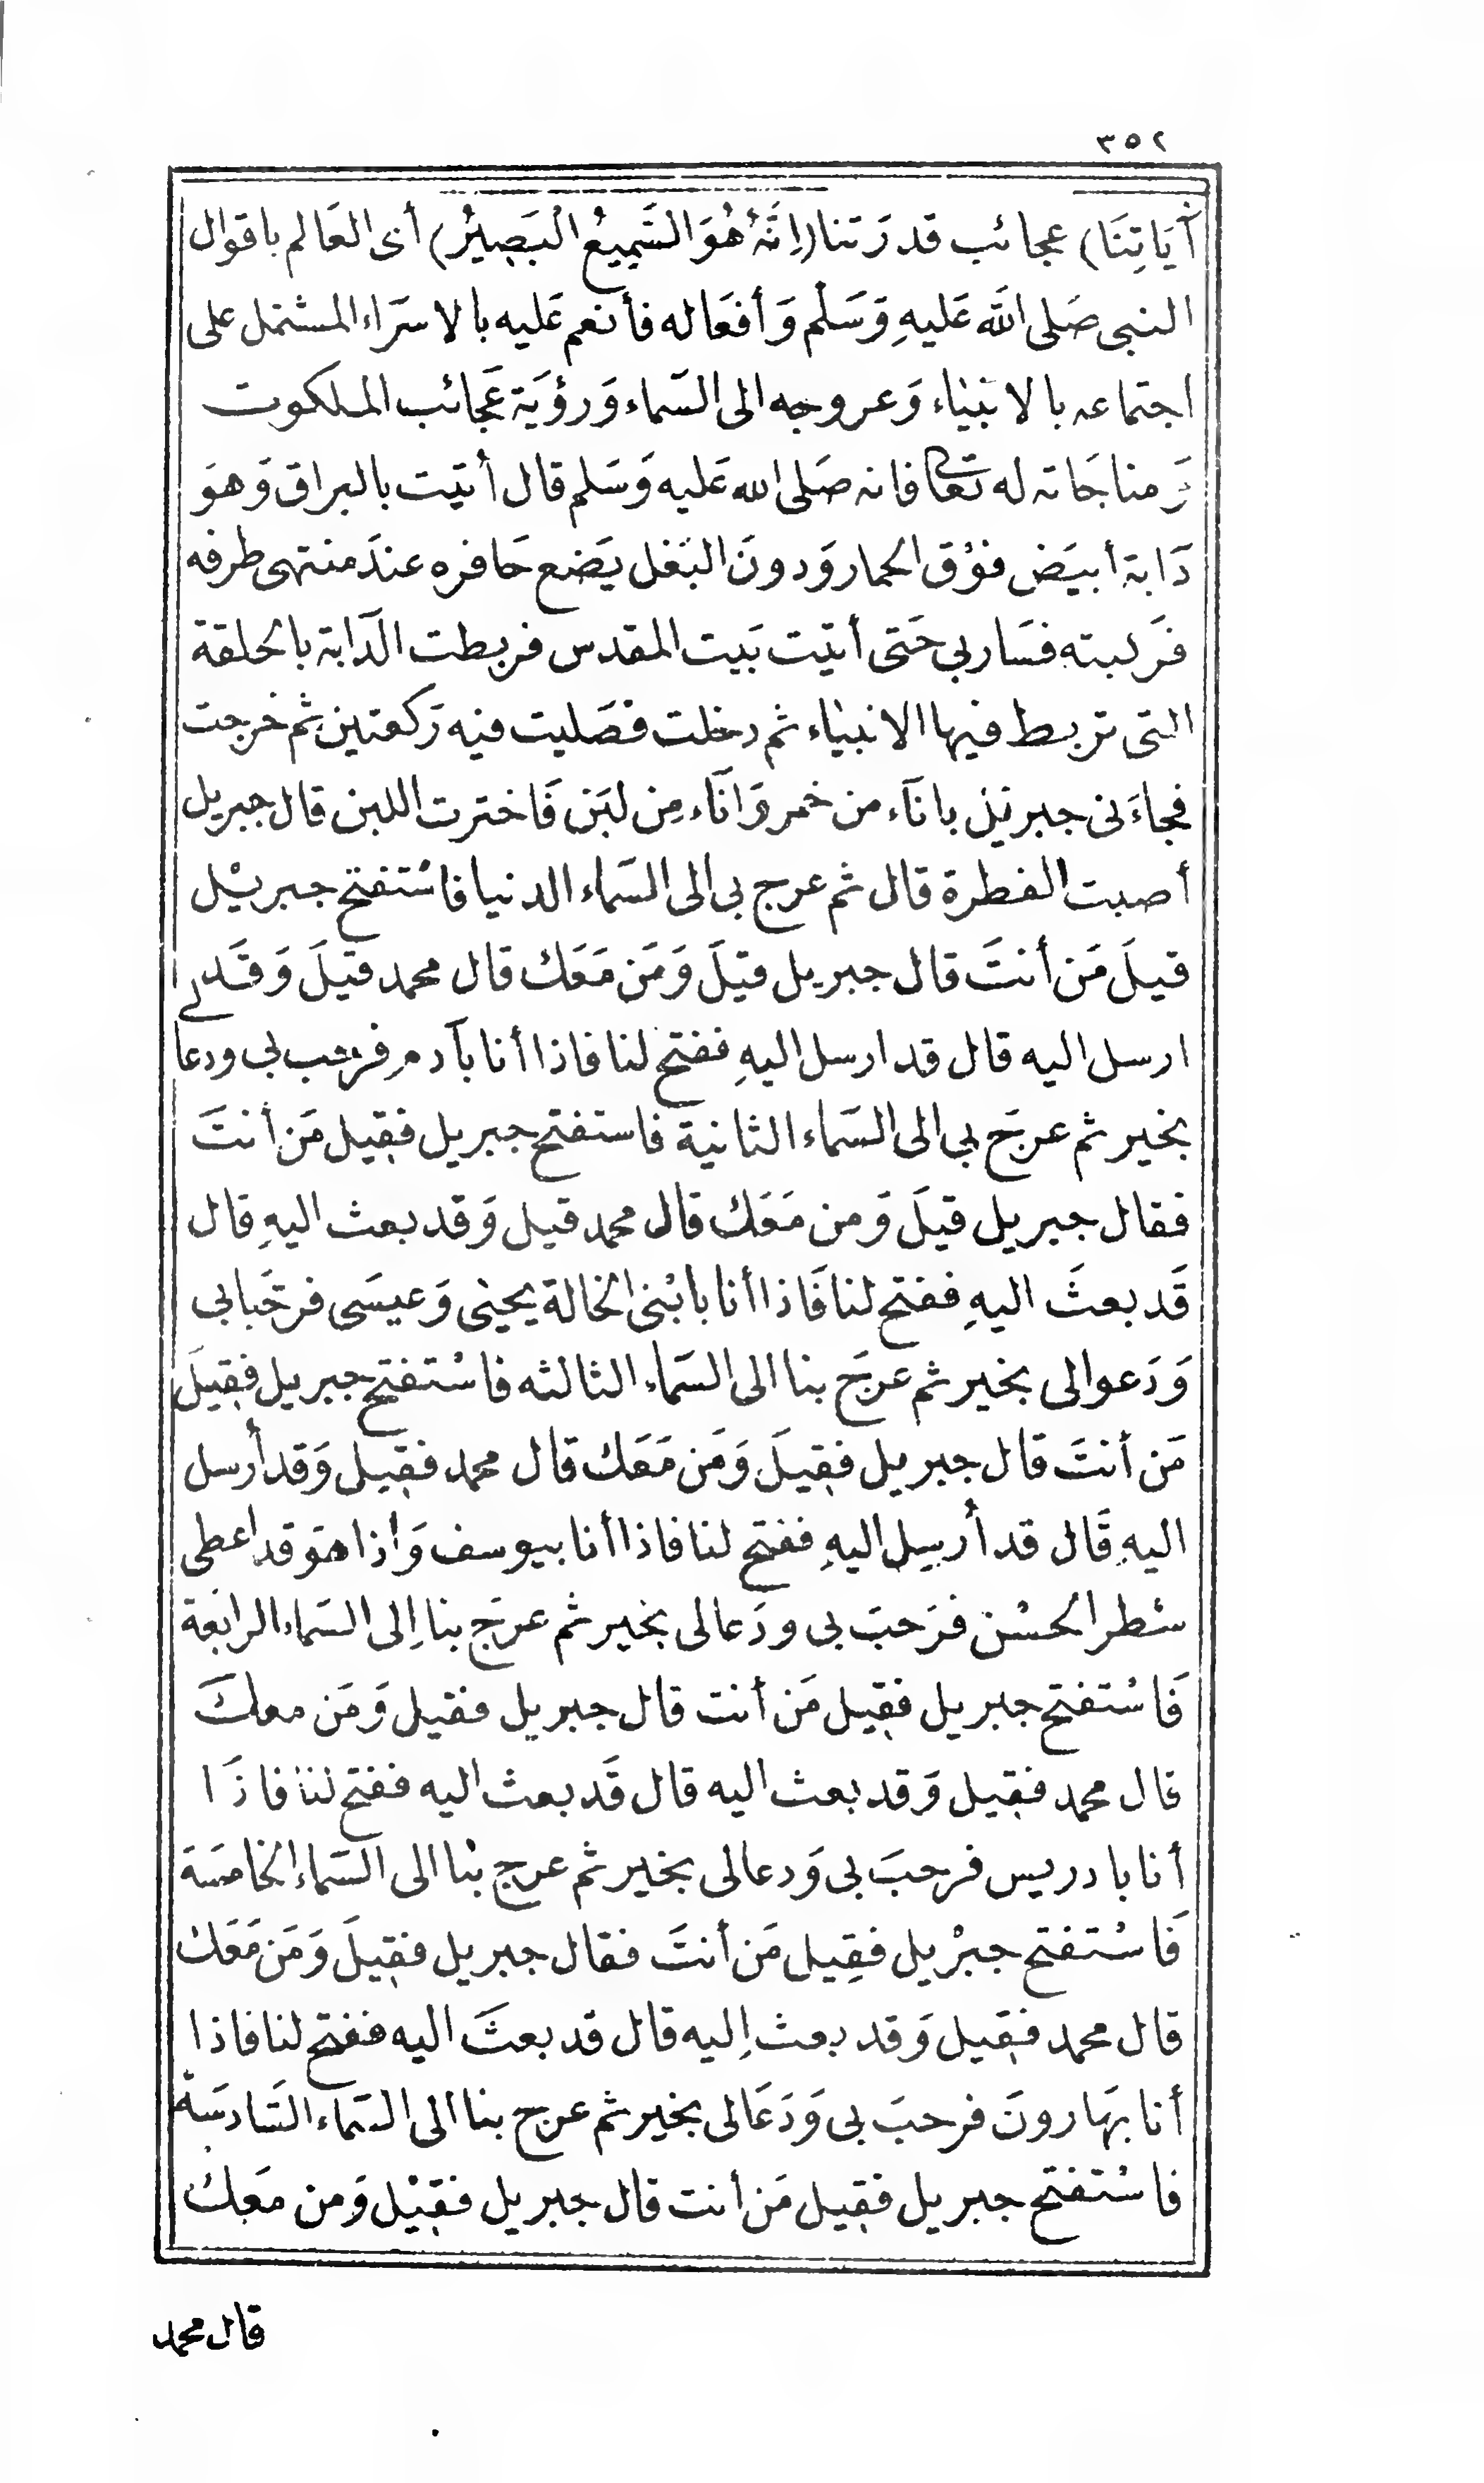 ٣٥٢
آيَاتِنَا) عجائب قدرَتنا (اِنَّهُ هُوَ السَّمِيعُ الْبَصِيرُ) أى العَالم باقوال
النبى صَلى اللّه عَليهِ وَسَلّم وَأفعَاله فأنعم عَليه بالاسرَاء المشتمل على
اجتماعه بالانبيَاء وَعروجه الى السّماء وَرؤيَة عَجائب الملكوت
وَمناجَاته له تعَالى فانه صَلى الله عَليه وَسَلم قال أتيَت بالبراق وَهوَ
دَابة أبيَض فوْق الحمار وَدونَ البَغل يَضع حَافره عندَ منتهى طرفه
فرَكبته فسَار بى حَتى أتيت بَيت المقدس فربطت الدّابة بالحلقة
التى تربط فيها الانبيَاء ثم دخلت فصَليت فيه رَكعتين ثم خرجت
فجاءَنى جبرئيل باناَء من خمر وَاناَء مِن لبَن فَاخترت اللبن قال جبريل
أصبت الفطرة قال ثم عرج بى الى السّماء الدنيا فاسْتفتح جبريْل
قيلَ مَن أنتَ قال جبريل قيَلَ وَمَن مَعَك قال محمد قيلَ وَقَد
ارسل اليه قال قد ارسل اليهِ ففتح لنا فاذا أنا بآدم فرحب بى ودعا لى
بخير ثم عرجَ بى الى السّماء الثانية فاستفتح جبريل فقيل مَن أنتَ
فقال جبريل قيلَ وَمن مَعَك قال محمد قيل وَقد بعث اليهِ قال
قَد بعثَ اليهِ ففتح لنا فَاذا أنا بابْنى الخالة يحيٰى وَعيسَى فرحّبا بى
وَدَعوا لى بخير ثم عرجَ بنا الى السّماء الثالثه فاسْتفتح جبريل فقيلَ
مَن أنتَ قال جبريل فقيلَ وَمَن مَعَك قال محمد فقيل وَقد أرسل
اليهِ قَال قد أُرسِل اليهِ ففتح لنا فاذا أنا بيوسف وَاذا هوَ قد اعطى
شطر الحسْن فرَحبَ بى ودَعا لى بخير ثم عرجَ بنا اِلى السّماء الرابعَة
فَاسْتفتح جبريل فقيل مَن أنت قال جبريل فقيل وَمَن معكَ
قال محمد فقيل وَقد بعث اليه قال قَد بعث اليه ففتح لنا فاذَا
أنا بادريس فرحبَ بى وَدعا لى بخير ثم عرج بنا الى السّماء الخامسَة
فَاسْتفتح جبْريل فقِيل مَن أنتَ فقال جبريل فقيلَ وَمَن مَعَك
قال محمد فقيل وَقد بعث اِليه قال قد بعثَ اليه ففتح لنا فاذا
أنا بهَارونَ فرحبَ بى وَدَعَا لى بخير ثم عرج بنا الى السّماء السّادسَة
فاسْتفتح جبريل فقيل مَن أنت قال جبريل فقيْل وَمن معَك
قال محمد